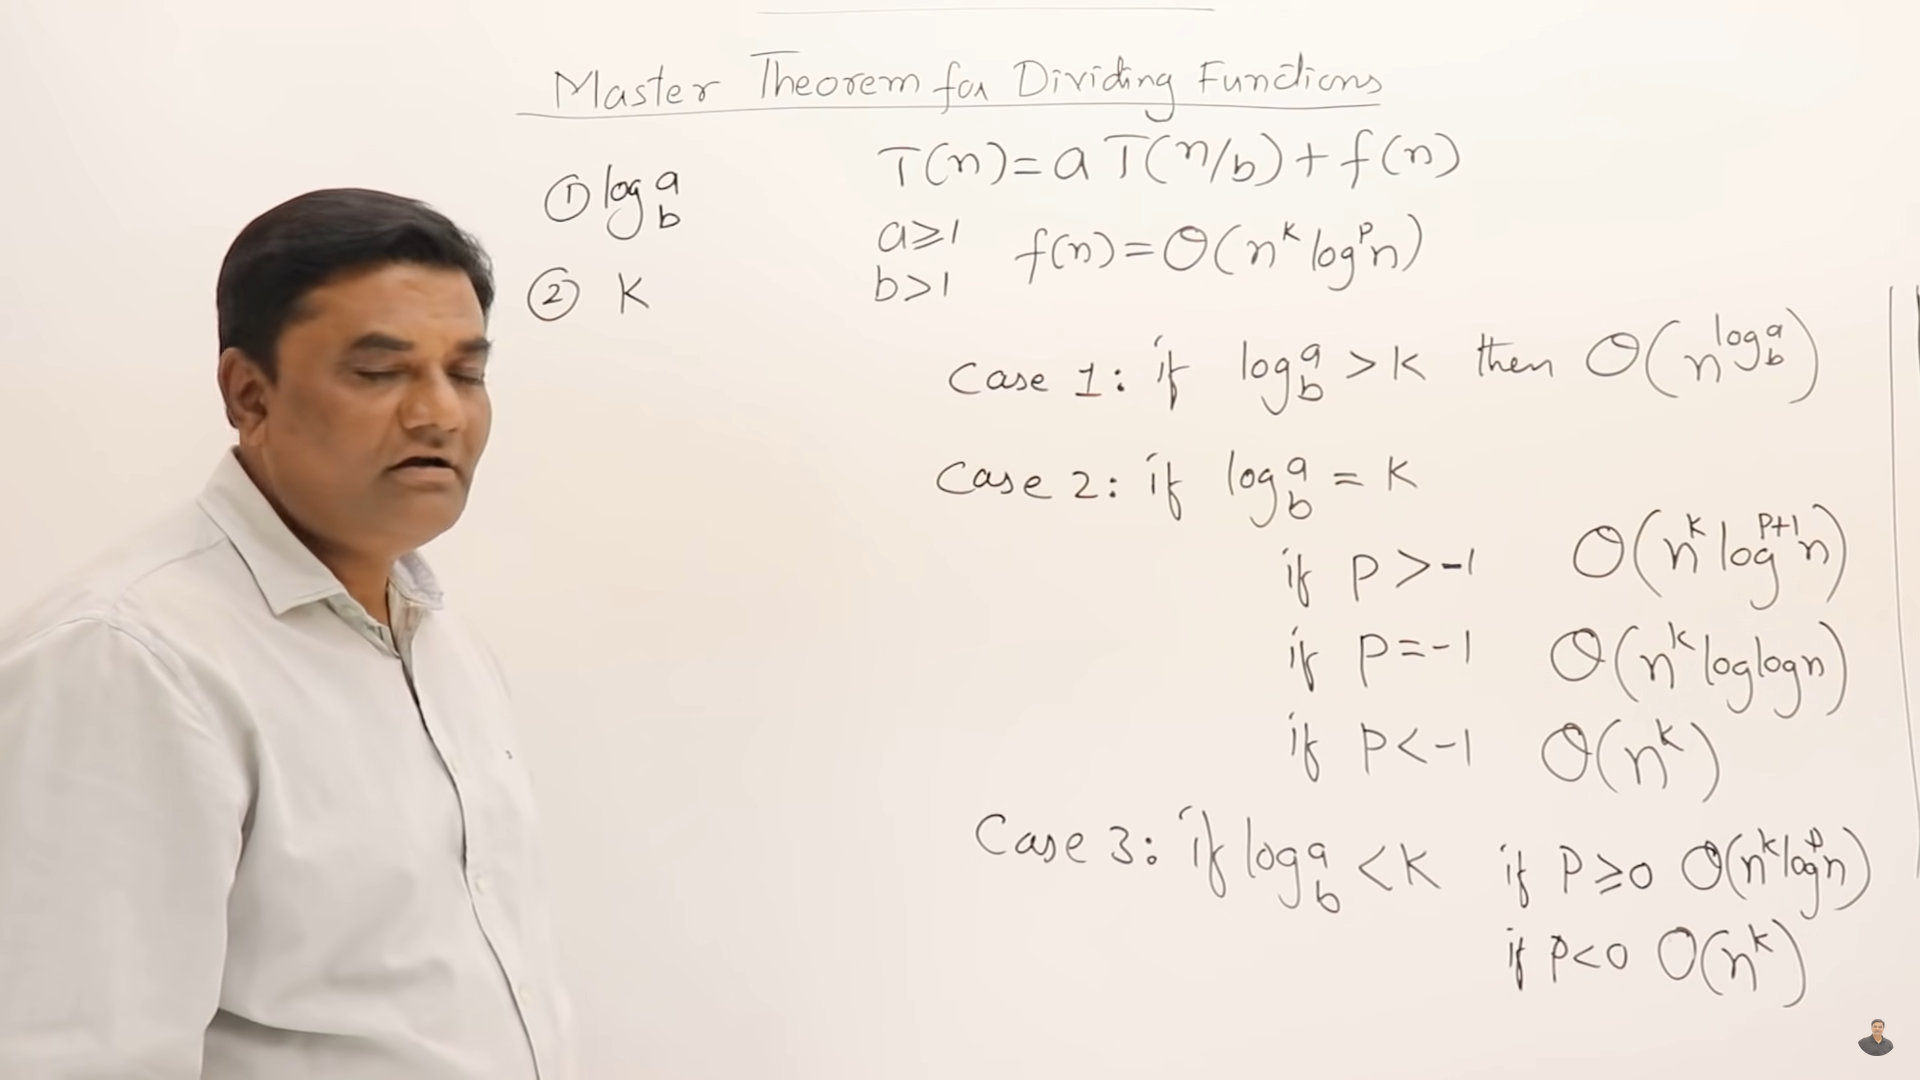 Master Theorem for Dividing Functions
① log_b^a
② K
T(n)= a T(n/b) + f(n)
a≥1
b>1
f(n) = O(n^k log^p n)
Case 1: if log_b^a > K then O(n^(log_b^a))
Case 2: if log_b^a = K
if P > -1 O(n^k log^(P+1) n)
if P = -1 O(n^k loglogn)
if P < -1 O(n^k)
Case 3: if log_b^a < K if P ≥ 0 O(n^k log^p n)
if P < 0 O(n^k)